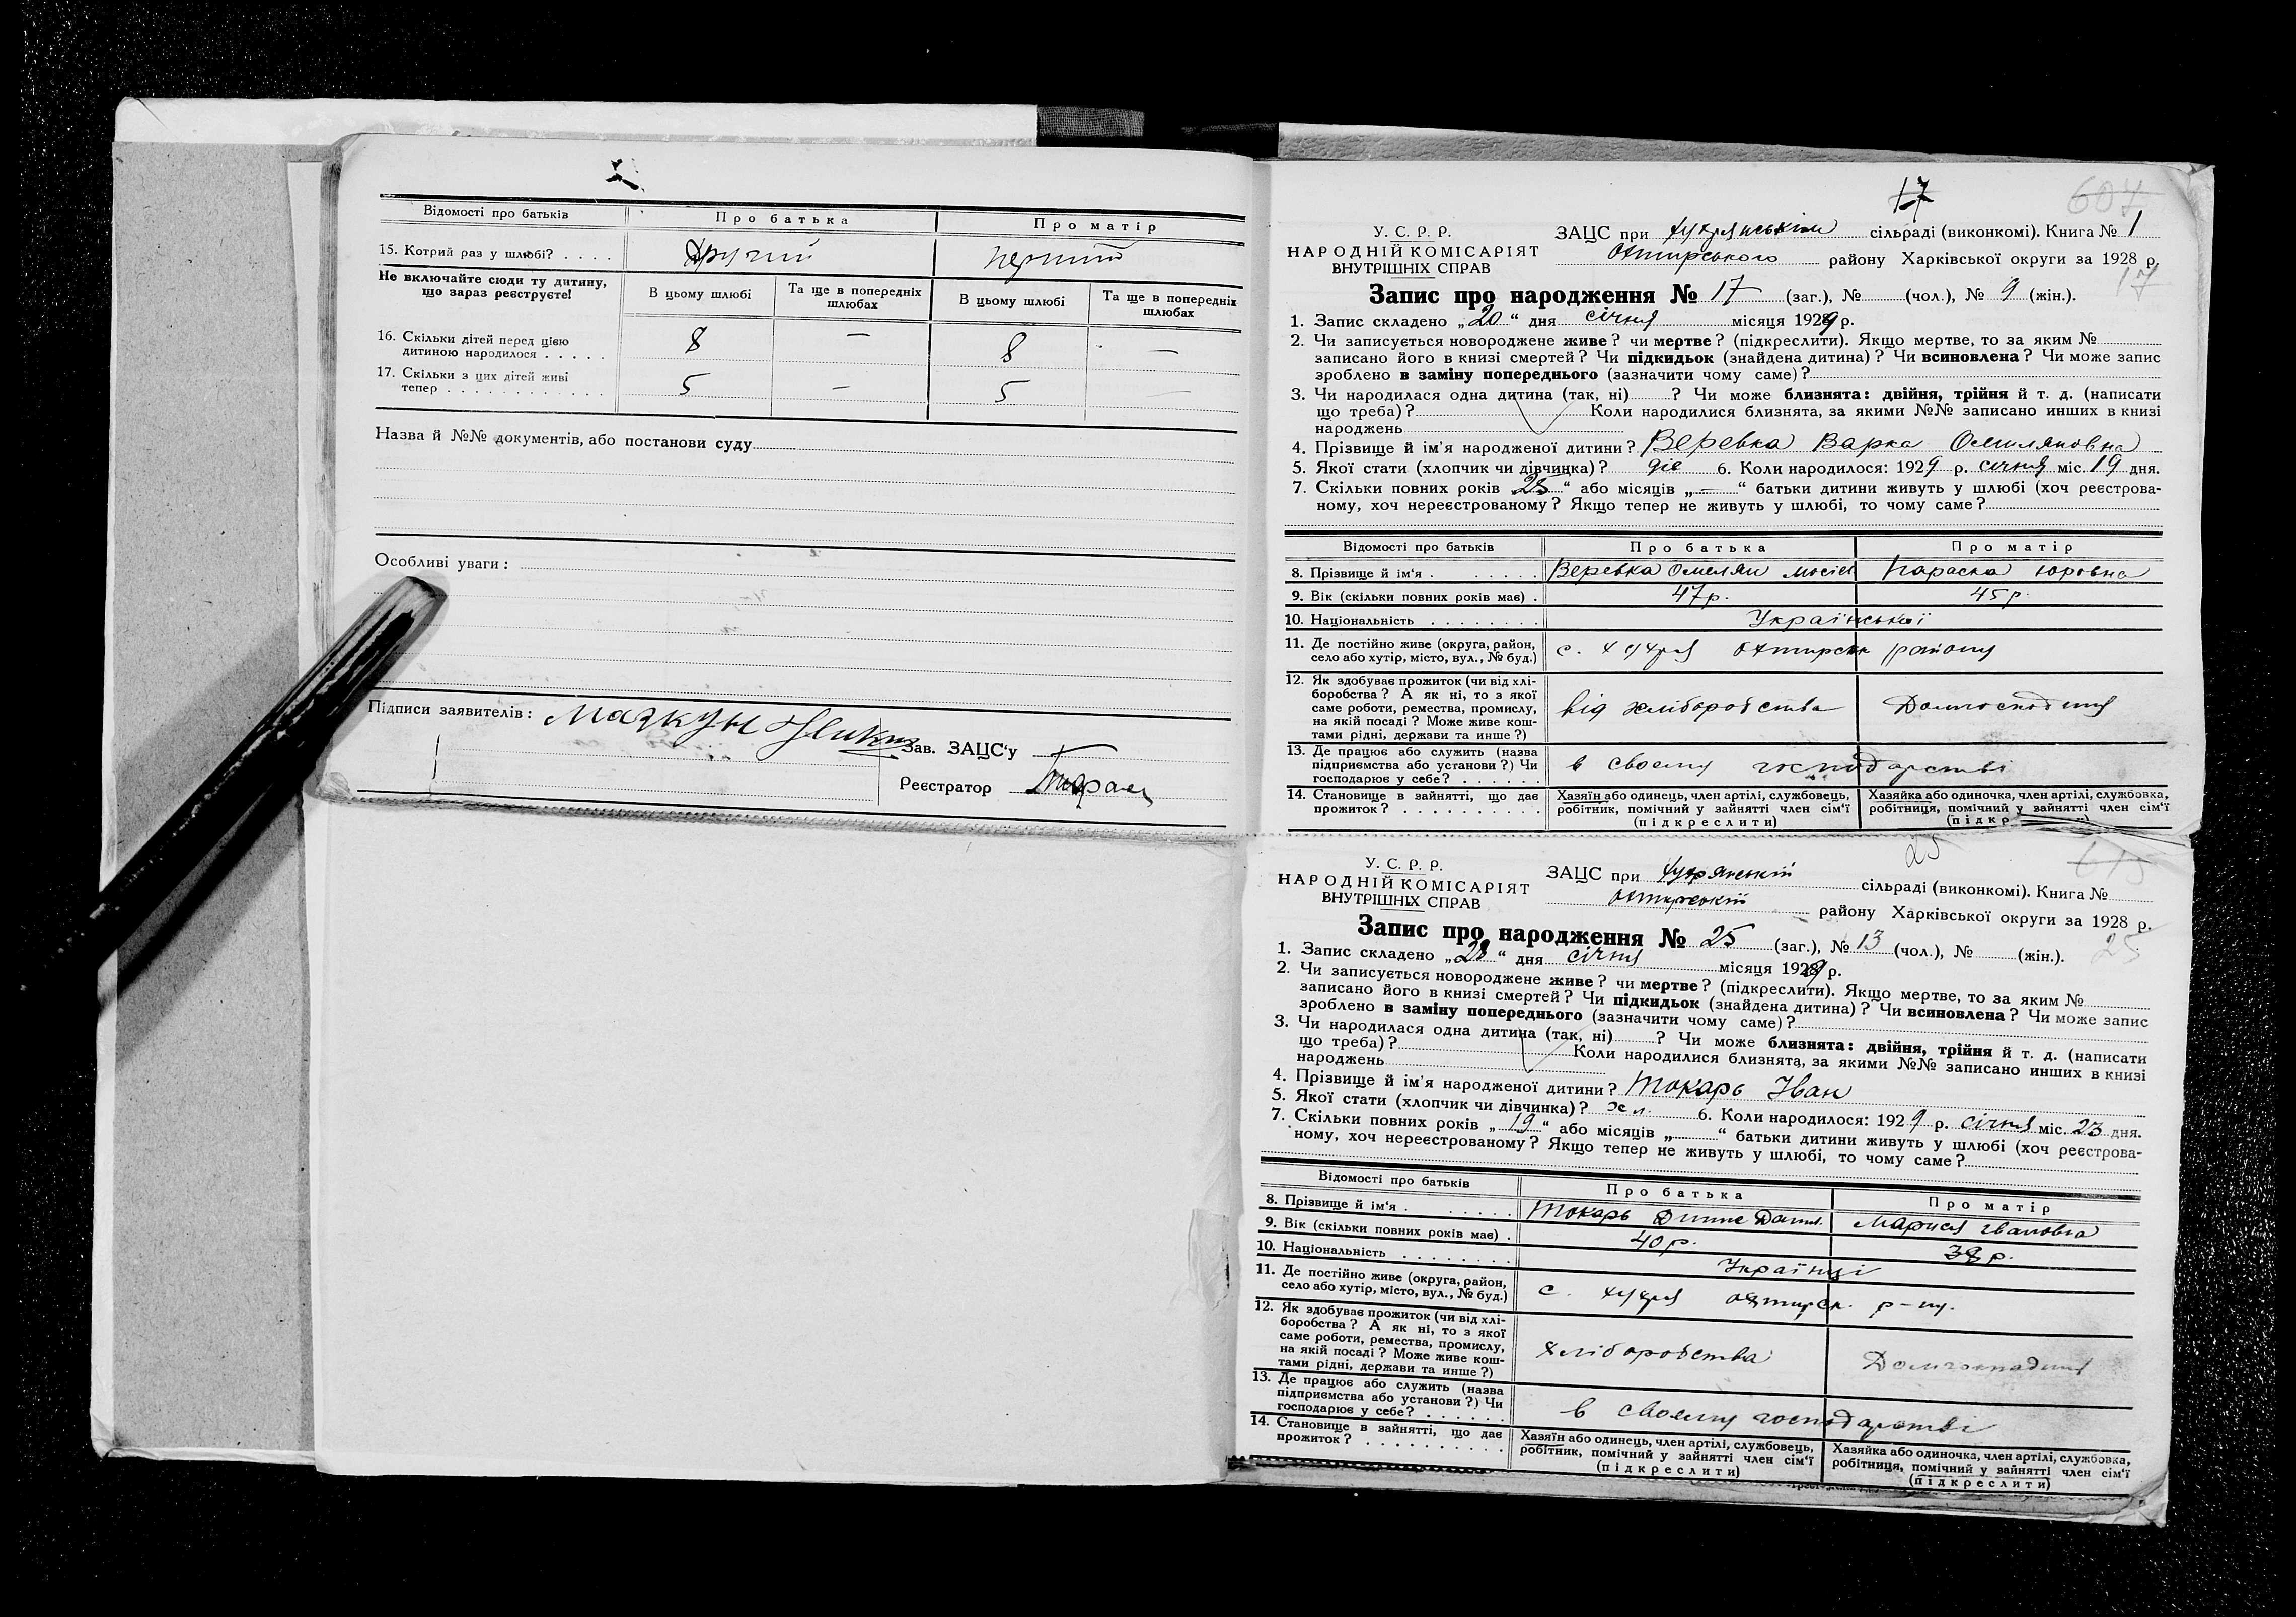 Відомості про батьків Про батька Про матір
15. Котрий раз у шлюбі? . . . . другий перший
Не включайте сюди ту дитину,
що зараз реєструєте!
В цьому шлюбі Та ще в попередніх шлюбах В цьому шлюбі Та ще в попередніх шлюбах
16. Скільки дітей перед цією
дитиною народилося . . . . . 8 — 8 —
17. Скільки з цих дітей живі
тепер . . . . . . . . . . . . 5 — 5 —
Назва й №№ документів, або постанови суду
Особливі уваги:
Підписи заявителів: Мазкун
Зав. ЗАЦС'у
Реєстратор
17 607
У. С. Р. Р.
НАРОДНІЙ КОМІСАРІЯТ
ВНУТРІШНІХ СПРАВ
ЗАЦС при Хухрянській сільраді (виконкомі). Книга № 1
Охтирського району Харківської округи за 1928 р.
17
Запис про народження № 17 (заг.), № (чол.), № 9 (жін.).
1. Запис складено „20“ дня січня місяця 1929 р.
2. Чи записується новороджене живе? чи мертве? (підкреслити). Якщо мертве, то за яким №
записано його в книзі смертей? Чи підкидьок (знайдена дитина)? Чи всиновлена? Чи може запис
зроблено в заміну попереднього (зазначити чому саме)?
3. Чи народилася одна дитина (так, ні) ? Чи може близнята: двійня, трійня й т. д. (написати
що треба)? Коли народилися близнята, за якими №№ записано инших в книзі
народжень
4. Прізвище й ім'я народженої дитини? Веревка Варка Омиляновна
5. Якої стати (хлопчик чи дівчинка)? дів 6. Коли народилося: 1929 р. січня міс. 19 дня.
7. Скільки повних років „25“ або місяців „—“ батьки дитини живуть у шлюбі (хоч реєстрова-
ному, хоч нереєстрованому? Якщо тепер не живуть у шлюбі, то чому саме?
Відомості про батьків Про батька Про матір
8. Прізвище й ім'я . . . . . . Веревка Омелян Мосієв Параска Юровна
9. Вік (скільки повних років має) . 47 р. 45 р.
10. Національність . . . . . . . . Української
11. Де постійно живе (округа, район,
село або хутір, місто, вул., № буд.) с. Хухря Охтирськ району
12. Як здобуває прожиток (чи від хлі-
боробства? А як ні, то з якої
саме роботи, ремества, промислу,
на якій посаді? Може живе кош-
тами рідні, держави та инше?)
від хліборобства Домгосподиня
13. Де працює або служить (назва
підприємства або установи?) Чи
господарює у себе? . . . . . .
в своему господарстві
14. Становище в зайнятті, що дає
прожиток? . . . . . . . . . .
Хазяїн або одинець, член артілі, службовець,
робітник, помічний у зайнятті член сім'ї
(підкреслити)
Хазяйка або одиночка, член артілі, службовка,
робітниця, помічний у зайнятті член сім'ї
25 615
У. С. Р. Р.
НАРОДНІЙ КОМІСАРІЯТ
ВНУТРІШНІХ СПРАВ
ЗАЦС при Хухрянській сільраді (виконкомі). Книга №
Охтирській району Харківської округи за 1928 р.
25
Запис про народження № 25 (заг.), № 13 (чол.), № (жін.).
1. Запис складено „28“ дня січня місяця 1929 р.
2. Чи записується новороджене живе? чи мертве? (підкреслити). Якщо мертве, то за яким №
записано його в книзі смертей? Чи підкидьок (знайдена дитина)? Чи всиновлена? Чи може запис
зроблено в заміну попереднього (зазначити чому саме)?
3. Чи народилася одна дитина (так, ні) ? Чи може близнята: двійня, трійня й т. д. (написати
що треба)? Коли народилися близнята, за якими №№ записано инших в книзі
народжень
4. Прізвище й ім'я народженої дитини? Токарь Іван
5. Якої стати (хлопчик чи дівчинка)? хл. 6. Коли народилося: 1929 р. січня міс. 23 дня.
7. Скільки повних років „19“ або місяців „ “ батьки дитини живуть у шлюбі (хоч реєстрова-
ному, хоч нереєстрованому? Якщо тепер не живуть у шлюбі, то чому саме?
Відомості про батьків Про батька Про матір
8. Прізвище й ім'я . . . . . . Токарь Данил. Марися Івановна
9. Вік (скільки повних років має) . 40 р. 38 р.
10. Національність . . . . . . . Українці
11. Де постійно живе (округа, район,
село або хутір, місто, вул., № буд.) с. Хухря Охтирськ. р-ну.
12. Як здобуває прожиток (чи від хлі-
боробства? А як ні, то з якої
саме роботи, ремества, промислу,
на якій посаді? Може живе кош-
тами рідні, держави та инше?)
хліборобства Домгосподиня
13. Де працює або служить (назва
підприємства або установи?) Чи
господарює у себе? . . . . . .
в своему господарстві
14. Становище в зайнятті, що дає
прожиток? . . . . . . . . . .
Хазяїн або одинець, член артілі, службовець,
робітник, помічний у зайнятті член сім'ї
(підкреслити)
Хазяйка або одиночка, член артілі, службовка,
робітниця, помічний у зайнятті член сім'ї
(підкреслити)